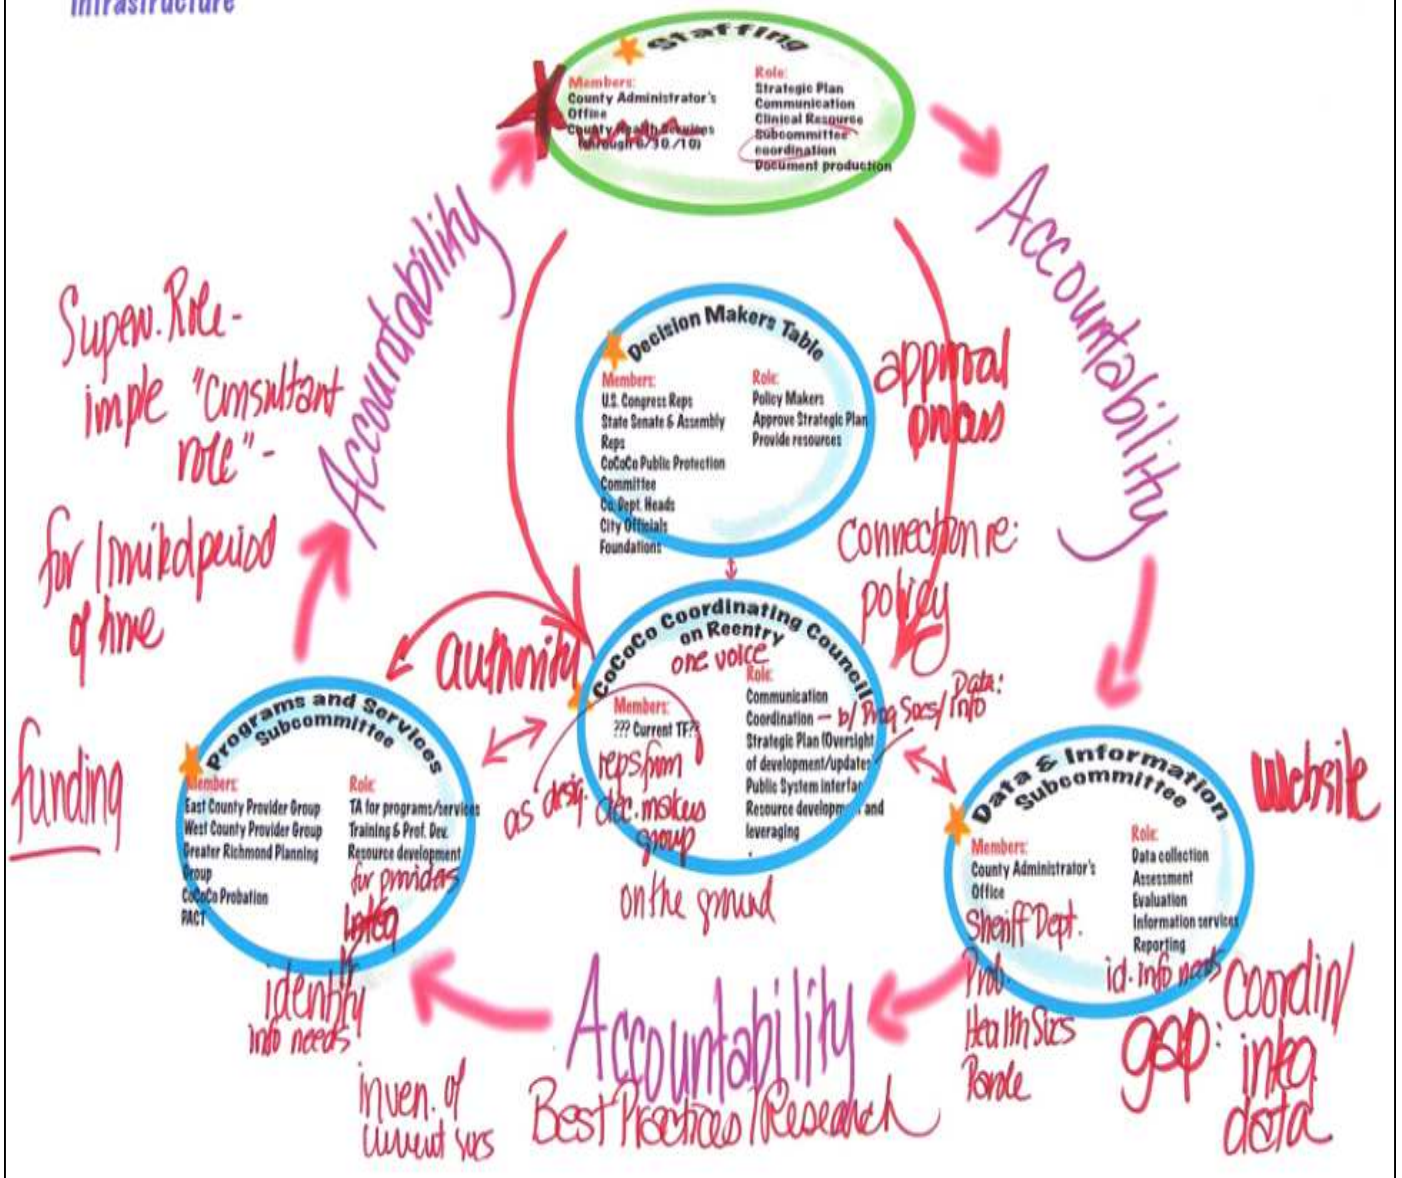 Infrastructure
Staffing
Members:
County Administrator's
Office
County Health Services
(through 6/30/10)
Role:
Strategic Plan
Communication
Clinical Resource
Subcommittee
coordination
Document production
Accountability
Accountability
Superv. Role -
imple "consultant
role" -
for limited period
of time
Decision Makers Table
Members:
U.S. Congress Reps
State Senate & Assembly
Reps
CoCoCo Public Protection
Committee
Co. Dept. Heads
City Officials
Foundations
Role:
Policy Makers
Approve Strategic Plan
Provide resources
approval
process
connection re:
policy
authority
CoCoCo Coordinating Council
on Reentry
one voice
Members:
??? Current TF??
reps from
dec. makers
group
as desig.
on the ground
Role:
Communication
Coordination – b/ Prog Svcs/ Data:
Info
Strategic Plan (Oversight
of development/updates
Public System interface
Resource development and
leveraging
funding
Programs and Services
Subcommittee
Members:
East County Provider Group
West County Provider Group
Greater Richmond Planning
Group
CoCoCo Probation
PACT
Role:
TA for programs/services
Training & Prof. Dev.
Resource development
for providers
identify
info needs
inven. of
current svcs
Data & Information
Subcommittee
Members:
County Administrator's
Office
Sheriff Dept.
Prob.
Health Svcs
Parole
Role:
Data collection
Assessment
Evaluation
Information services
Reporting
id. info needs
website
gap: coordin/
integ
data
Accountability
Best Practices/Research